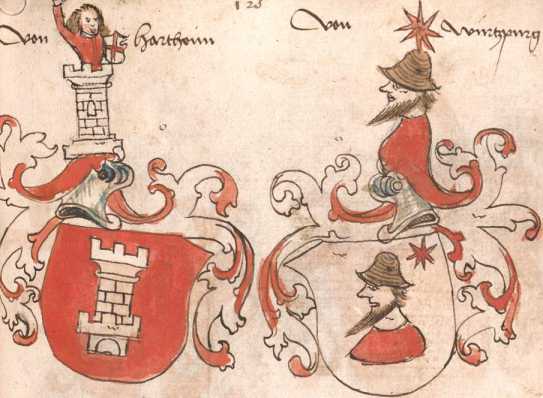 125
Von Hartheim
Von Wirtzpurg